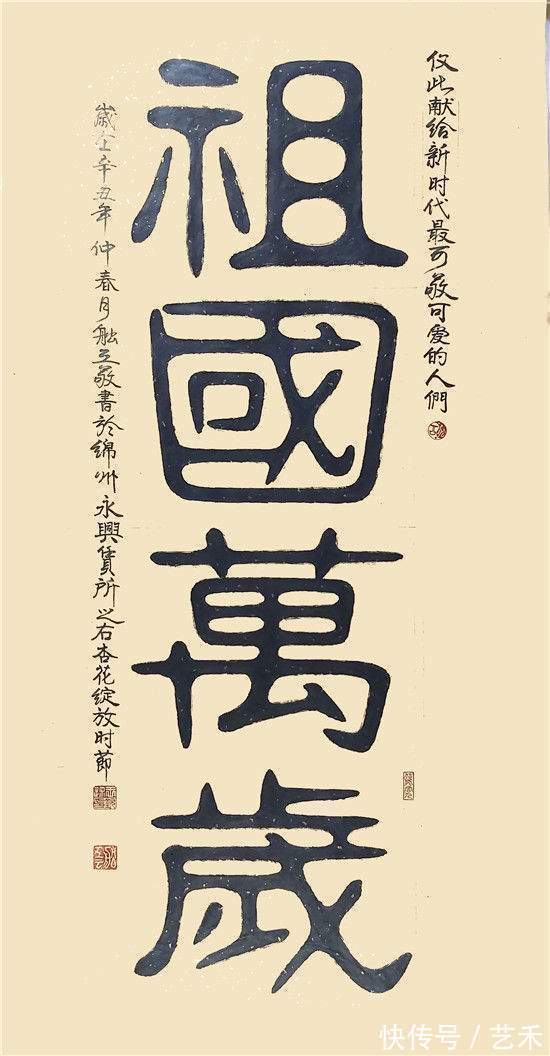 仅此献给新时代最可敬可爱的人們
祖國萬歲
歲在辛丑年仲春月敬書於绵州永興賃所之右杏花綻放时節
快传号 / 艺禾